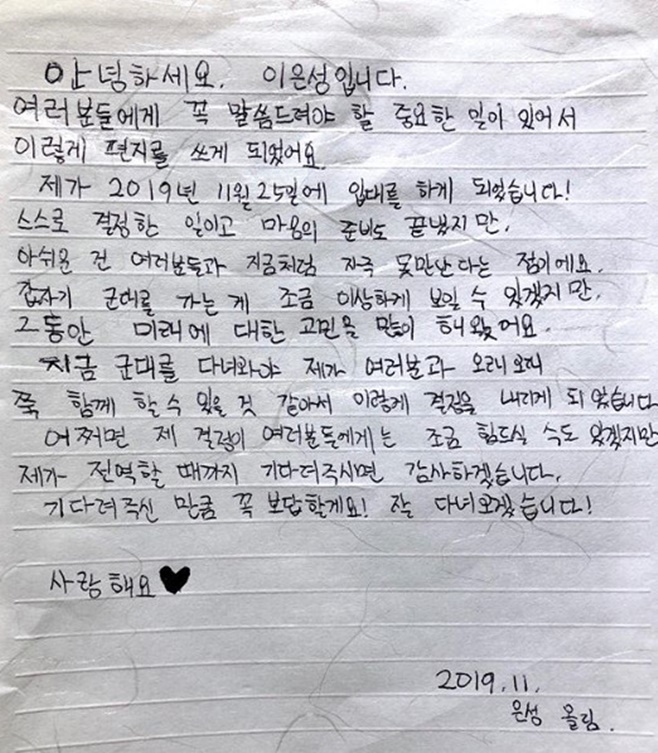 안녕하세요. 이은성입니다.
여러분들에게 꼭 말씀드려야 할 중요한 일이 있어서
이렇게 편지를 쓰게 되었어요
제가 2019년 11월 25일에 입대를 하게 되었습니다!
스스로 결정한 일이고 마음의 준비도 끝냈지만,
아쉬운 건 여러분들과 지금처럼 자주 못만난다는 점이에요.
갑자기 군대를 가는 게 조금 이상하게 보일 수 있겠지만,
그동안 미래에 대한 고민을 많이 해왔어요.
지금 군대를 다녀와야 제가 여러분과 오래오래
쭉 함께 할 수 있을 것 같아서 이렇게 결정을 내리게 되었습니다
어쩌면 제 결정이 여러분들에게는 조금 힘드실 수도 있겠지만
제가 전역할 때까지 기다려주시면 감사하겠습니다.
기다려주신 만큼 꼭 보답할게요! 잘 다녀오겠습니다!
사랑해요♥
2019.11.
은성 올림.